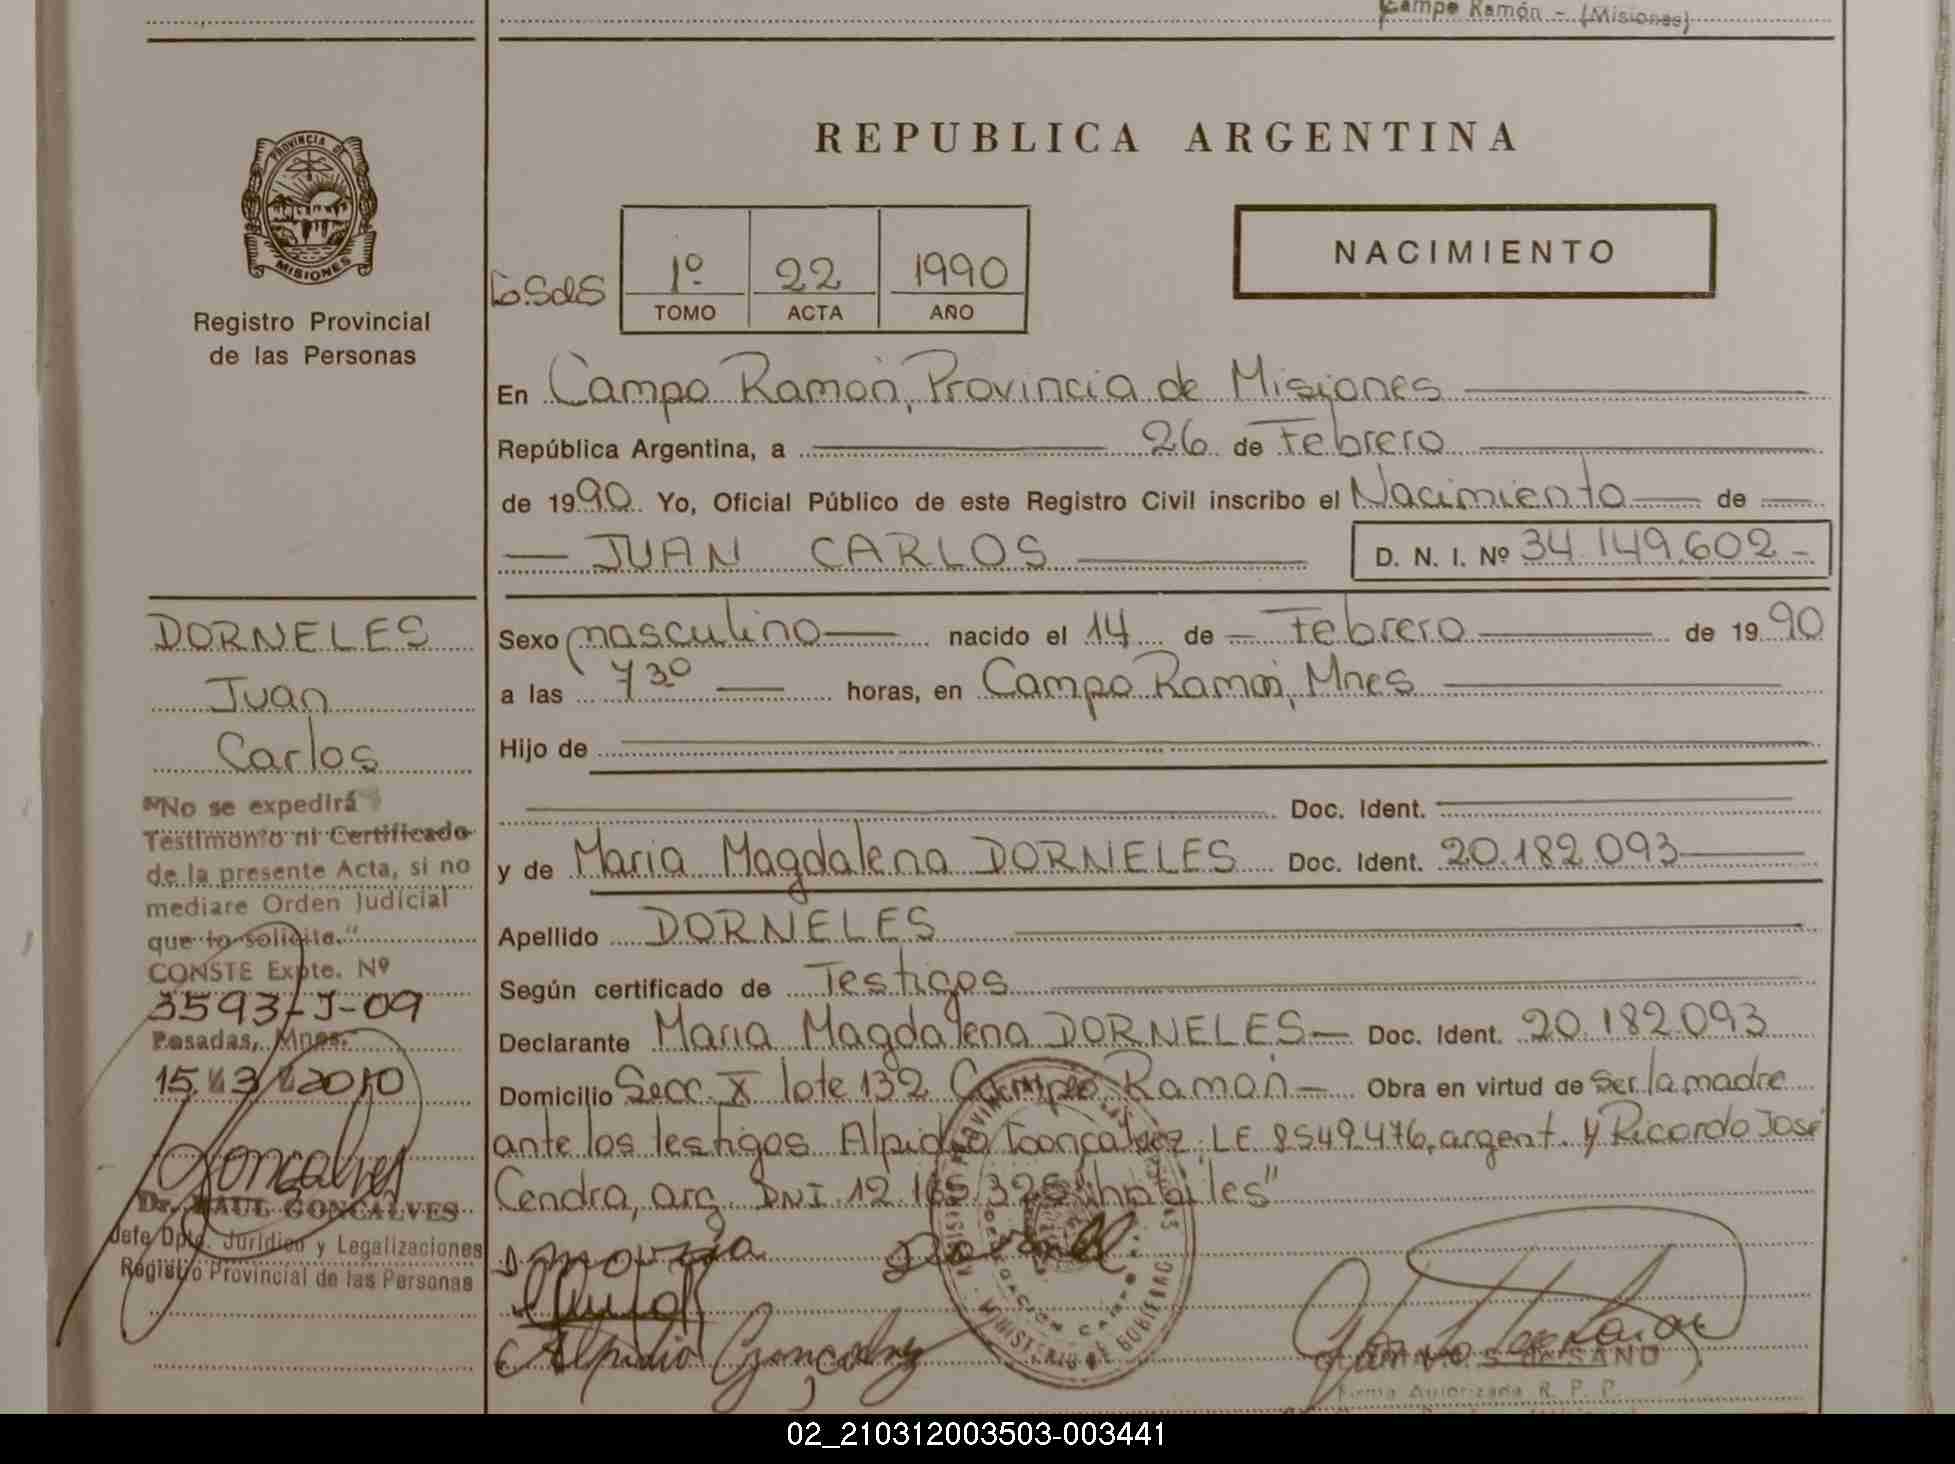 Campo Ramón - (Misiones)
REPUBLICA ARGENTINA
PROVINCIA DE
MISIONES
Registro Provincial
de las Personas
1º 22 1990
TOMO ACTA AÑO
NACIMIENTO
En Campo Ramón, Provincia de Misiones
República Argentina, a 26 de Febrero
de 1990 Yo, Oficial Público de este Registro Civil inscribo el Nacimiento de
JUAN CARLOS D. N. I. Nº 34.149.602-
DORNELES
Juan
Carlos
"No se expedirá
Testimonio ni Certificado
de la presente Acta, si no
mediare Orden Judicial
que lo solicite."
CONSTE Expte. Nº
3593-J-09
Posadas, Mnes.
15 3 2010
Goncalves
Dr. RAUL GONCALVES
Jefe Dpto. Jurídico y Legalizaciones
Registro Provincial de las Personas
Sexo masculino nacido el 14 de Febrero de 1990
a las 7 30 horas, en Campo Ramón, Mnes
Hijo de
Doc. Ident.
y de Maria Magdalena DORNELES Doc. Ident. 20.182.093
Apellido DORNELES
Según certificado de Testigos
Declarante Maria Magdalena DORNELES Doc. Ident. 20.182.093
Domicilio Secc. X lote 132 Campo Ramón Obra en virtud de ser la madre
ante los testigos Alpidio Goncalvez, LE 8549.476, argent. y Ricardo José
Cendra, arg. DNI 12.165.325 "hábiles"
Alpidio Gonçalvez
MINISTERIO DE GOBIERNO
Firma Autorizada R. P. P.
02_210312003503-003441